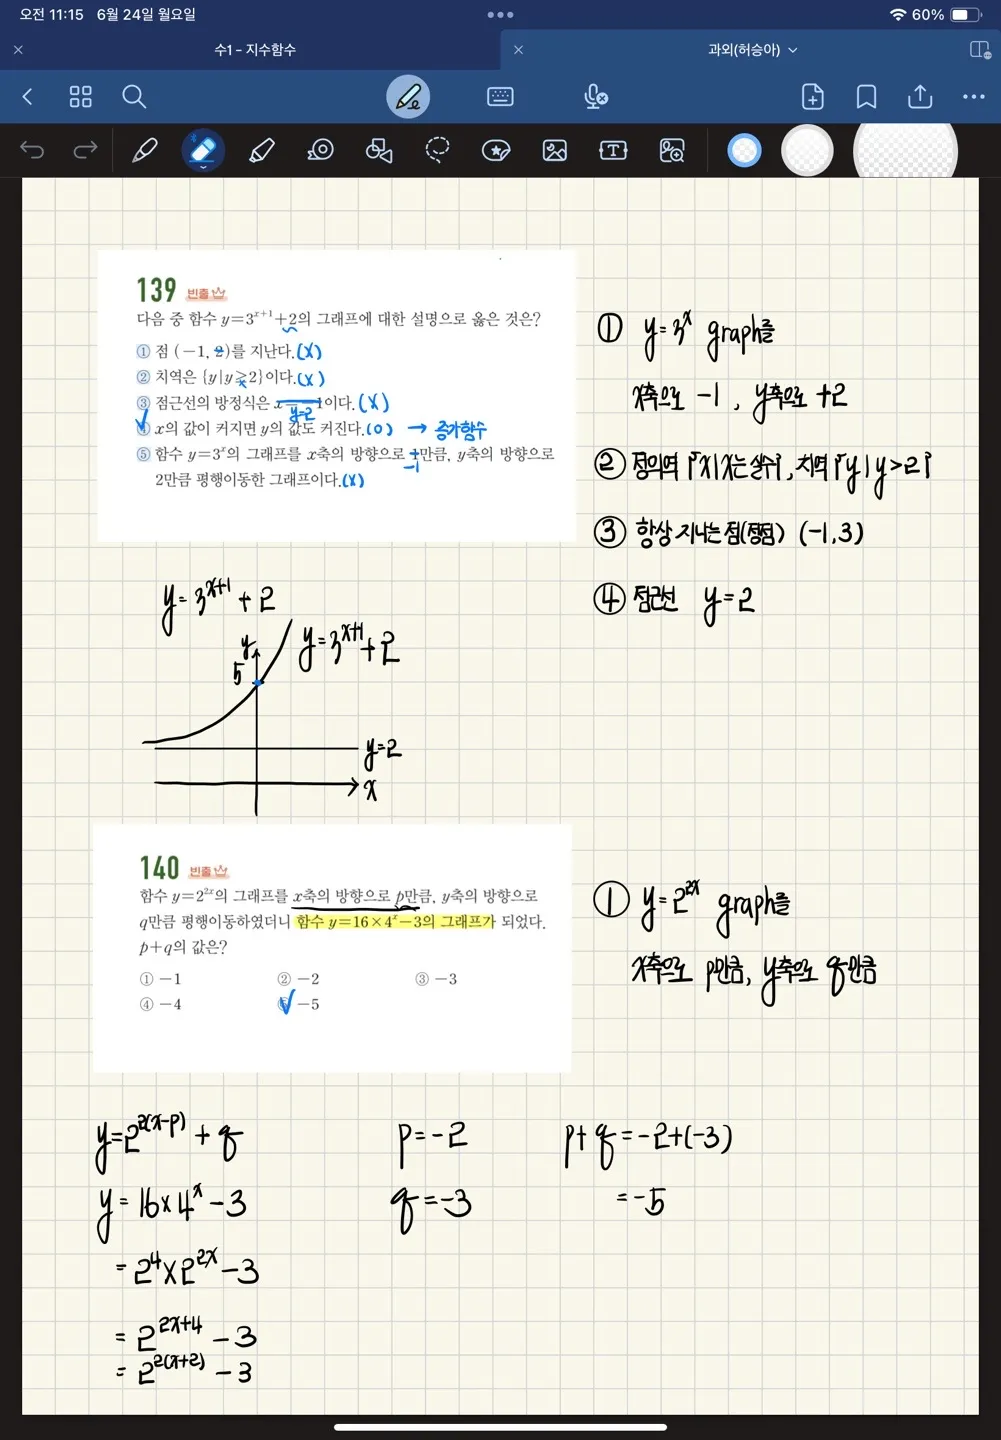 오전 11:15 6월 24일 월요일
60%
수1 - 지수함수
과외(허승아)
139 빈출
다음 중 함수 y=3^{x+1}+2의 그래프에 대한 설명으로 옳은 것은?
① 점 (-1, 2)를 지난다. (X)
② 치역은 {y|y≥2}이다. (X)
③ 점근선의 방정식은 x=-1이다. (X)
y=2
④ x의 값이 커지면 y의 값도 커진다. (O) → 증가함수
⑤ 함수 y=3^x의 그래프를 x축의 방향으로 1만큼, y축의 방향으로
-1
2만큼 평행이동한 그래프이다. (X)
① y=3^x graph를
x축으로 -1, y축으로 +2
② 정의역 {x|x는 실수}, 치역 {y|y>2}
③ 항상 지나는 점(정점) (-1,3)
④ 점근선 y=2
y=3^{x+1}+2
y=3^{x+1}+2
y
5
y=2
x
140 빈출
함수 y=2^{2x}의 그래프를 x축의 방향으로 p만큼, y축의 방향으로
q만큼 평행이동하였더니 함수 y=16×4^x-3의 그래프가 되었다.
p+q의 값은?
① -1 ② -2 ③ -3
④ -4 ⑤ -5
① y=2^{2x} graph를
x축으로 p만큼, y축으로 q만큼
y=2^{2(x-p)}+q
y=16×4^x-3
=2^4×2^{2x}-3
=2^{2x+4}-3
=2^{2(x+2)}-3
p=-2
q=-3
p+q=-2+(-3)
=-5